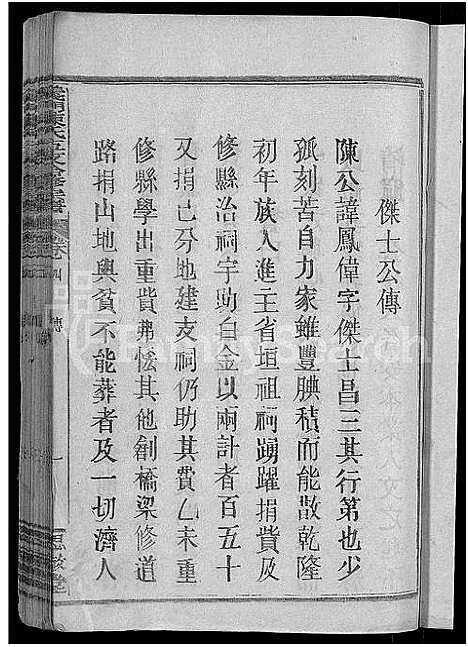 傑士公傳
陳公諱鳳偉字傑士昌三其行第也少
孤刻苦自力家雖豐腆積而能散乾隆
初年族人進主省垣祖祠踴躍捐貲及
修縣治祠宇助白金以兩計者百五十
又捐己分地建支祠仍助其費乙未重
修縣學出重貲弗恡其他創橋梁修道
路捐山地與貧不能葬者及一切濟人
義門陳氏
卷四
傳
一
FamilySearch